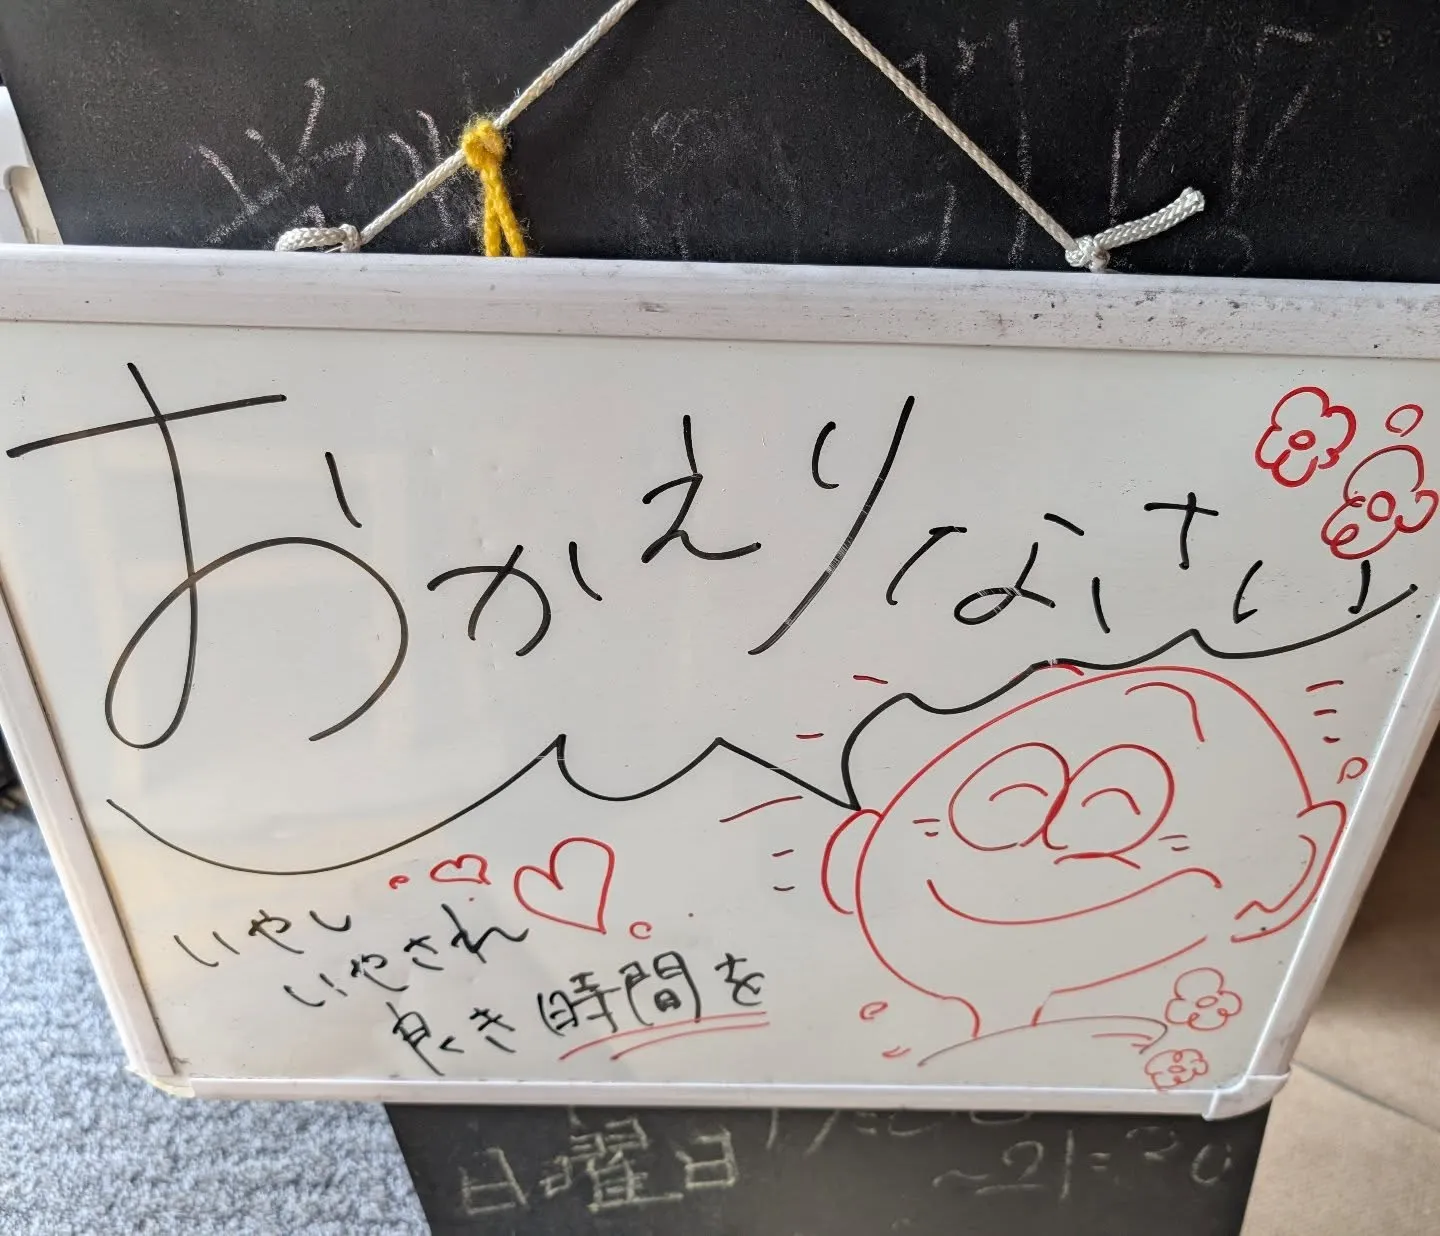 おかえりなさい
いやし
いやされ
良き時間を
日曜日
~21:30